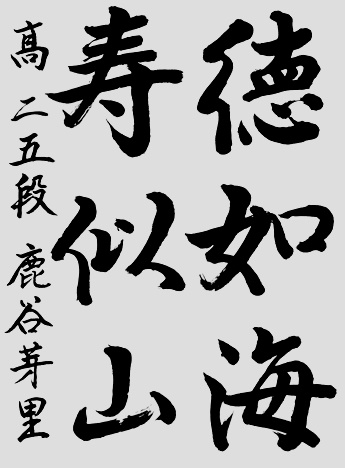 德如海
寿似山
高二五段 鹿谷芽里